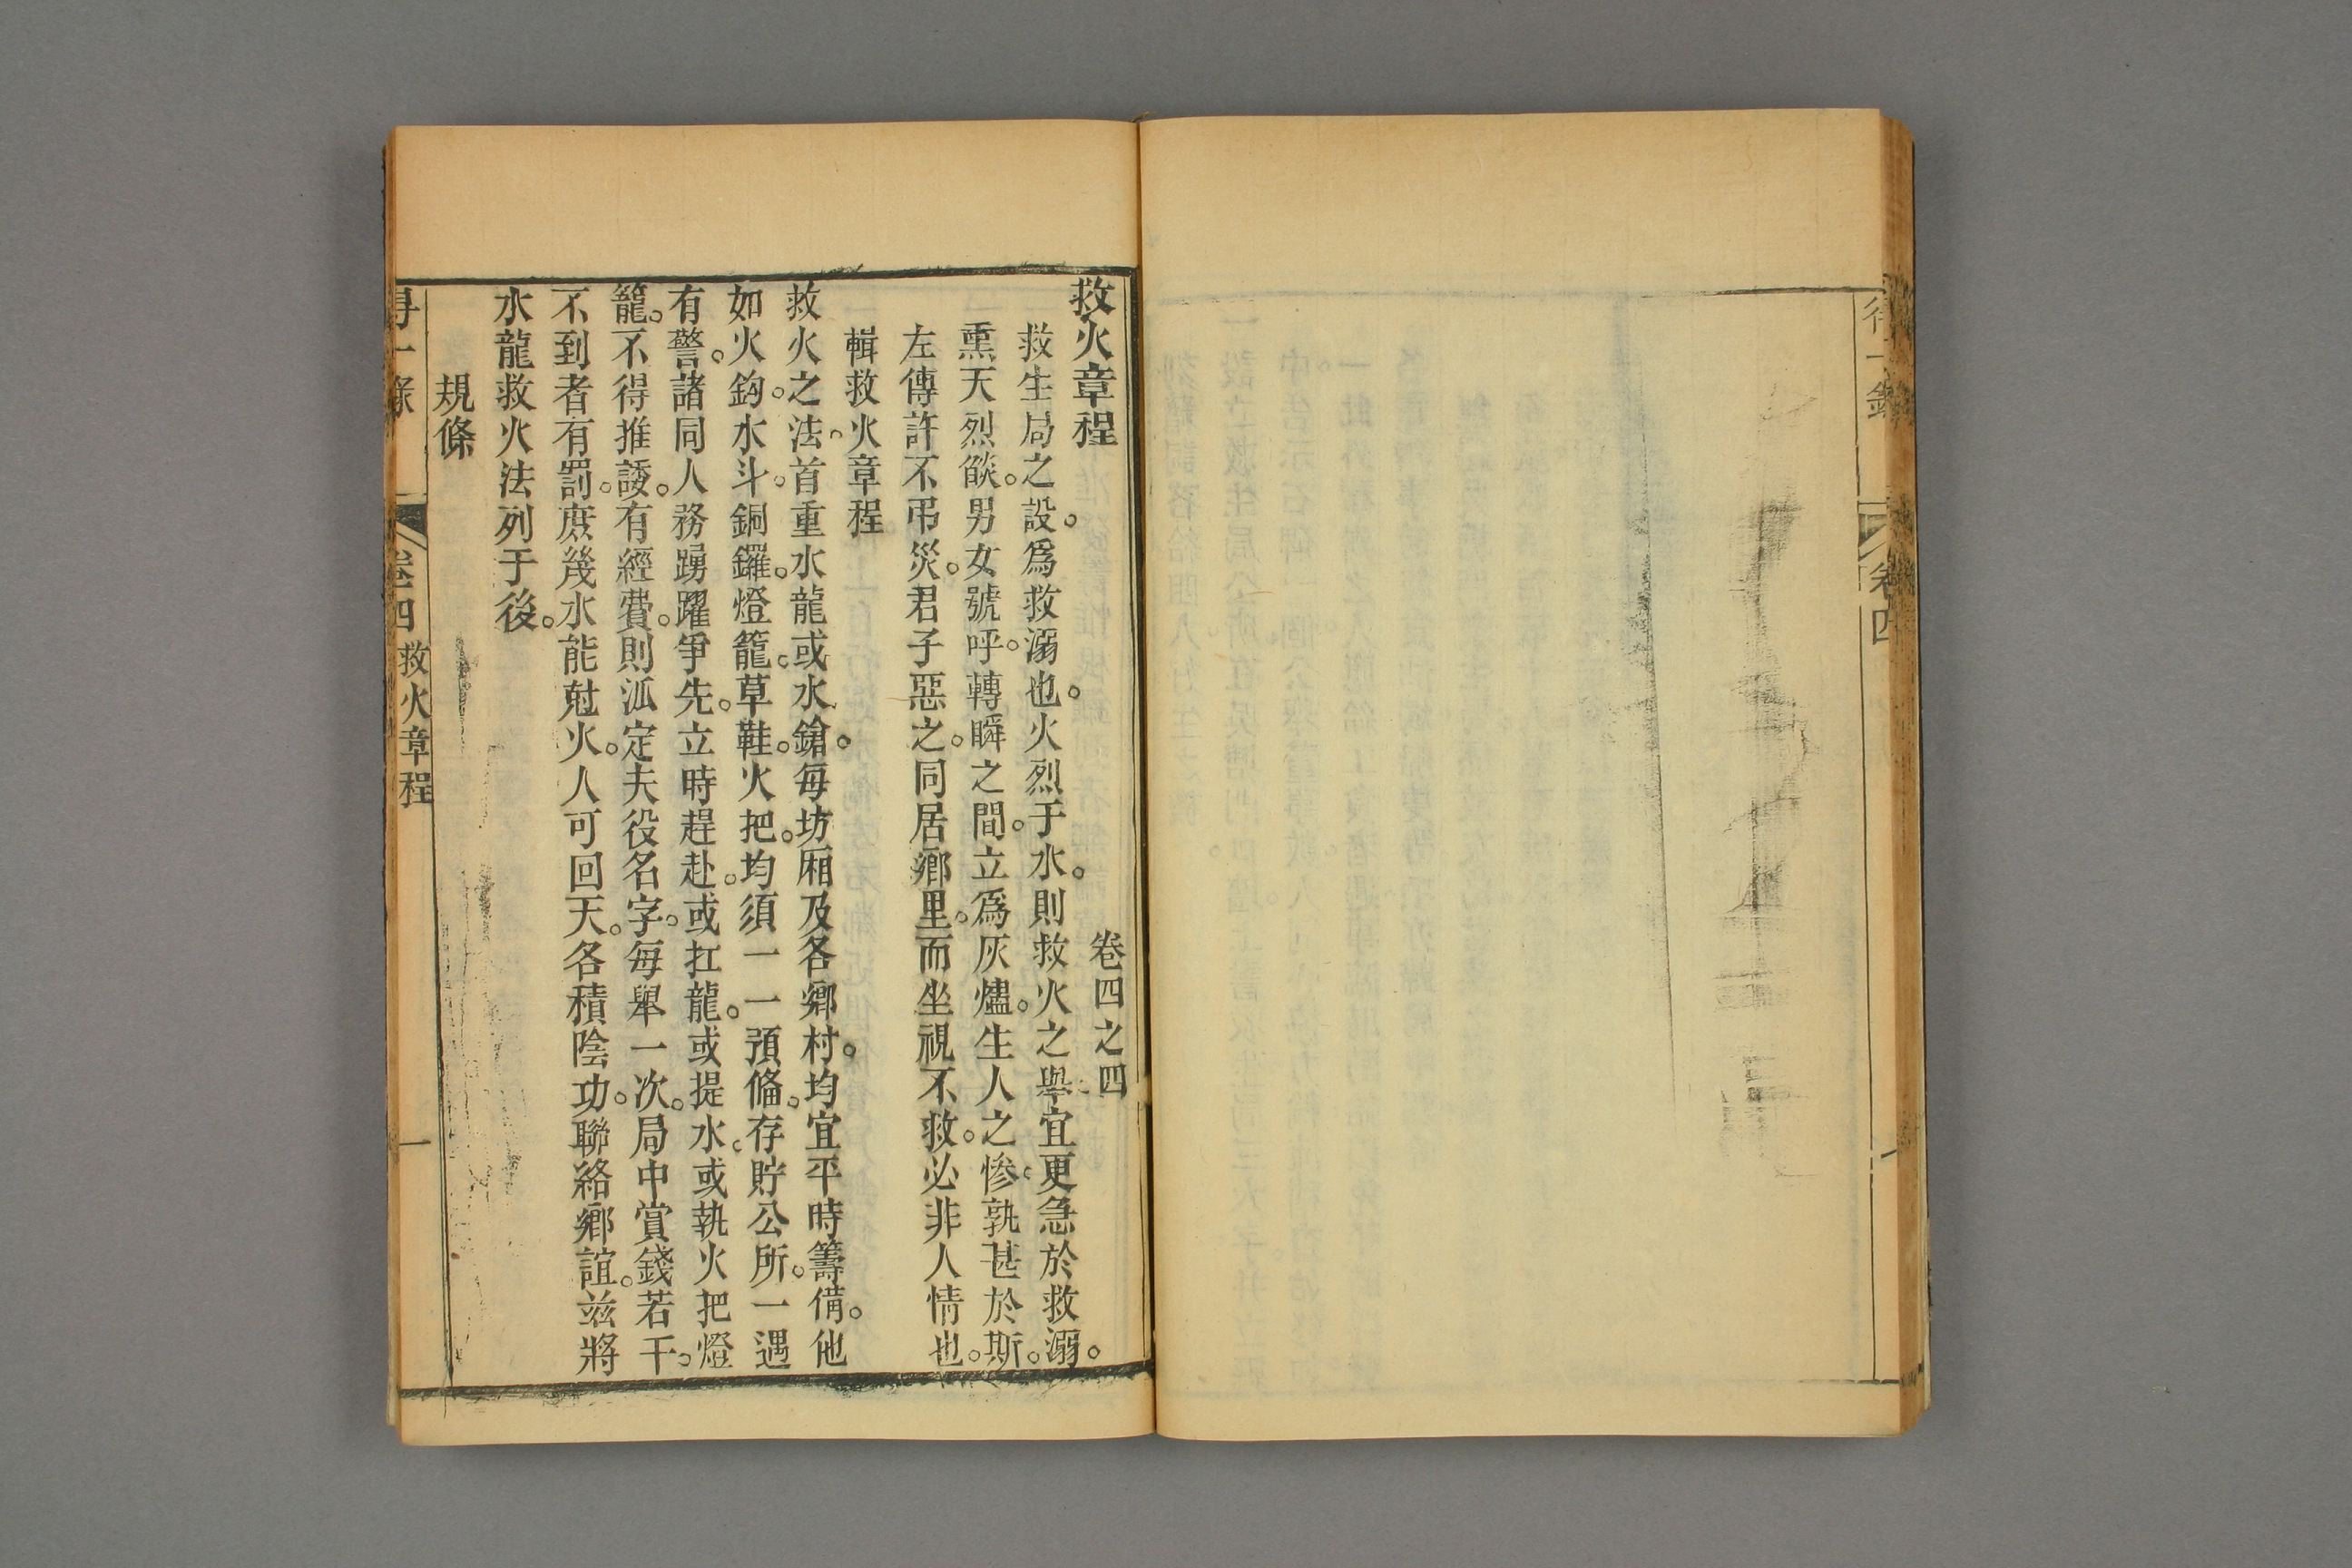 救火章程
卷四之四
救生局之設。爲救溺也。火烈于水。則救火之舉。宜更急於救溺。
熏天烈燄。男女號呼。轉瞬之間。立爲灰燼。生人之慘。孰甚於斯。
左傳許不弔災。君子惡之。同居鄉里。而坐視不救。必非人情也。
輯救火章程
救火之法。首重水龍或水鎗。每坊厢及各鄉村。均宜平時籌備。他
如火鈎。水斗。銅鑼。燈籠。草鞋。火把。均須一一預俻。存貯公所。一遇
有警。諸同人務踴躍爭先。立時趕赴。或扛龍。或提水。或執火把燈
籠。不得推諉。有經費。則派定夫役名字。每舉一次。局中賞錢若干。
不到者有罰。庶幾水能尅火。人可回天。各積陰功。聯絡鄉誼。茲將
水龍救火法列于後。
規條
得一錄
卷四
救火章程
一
得一錄
卷四